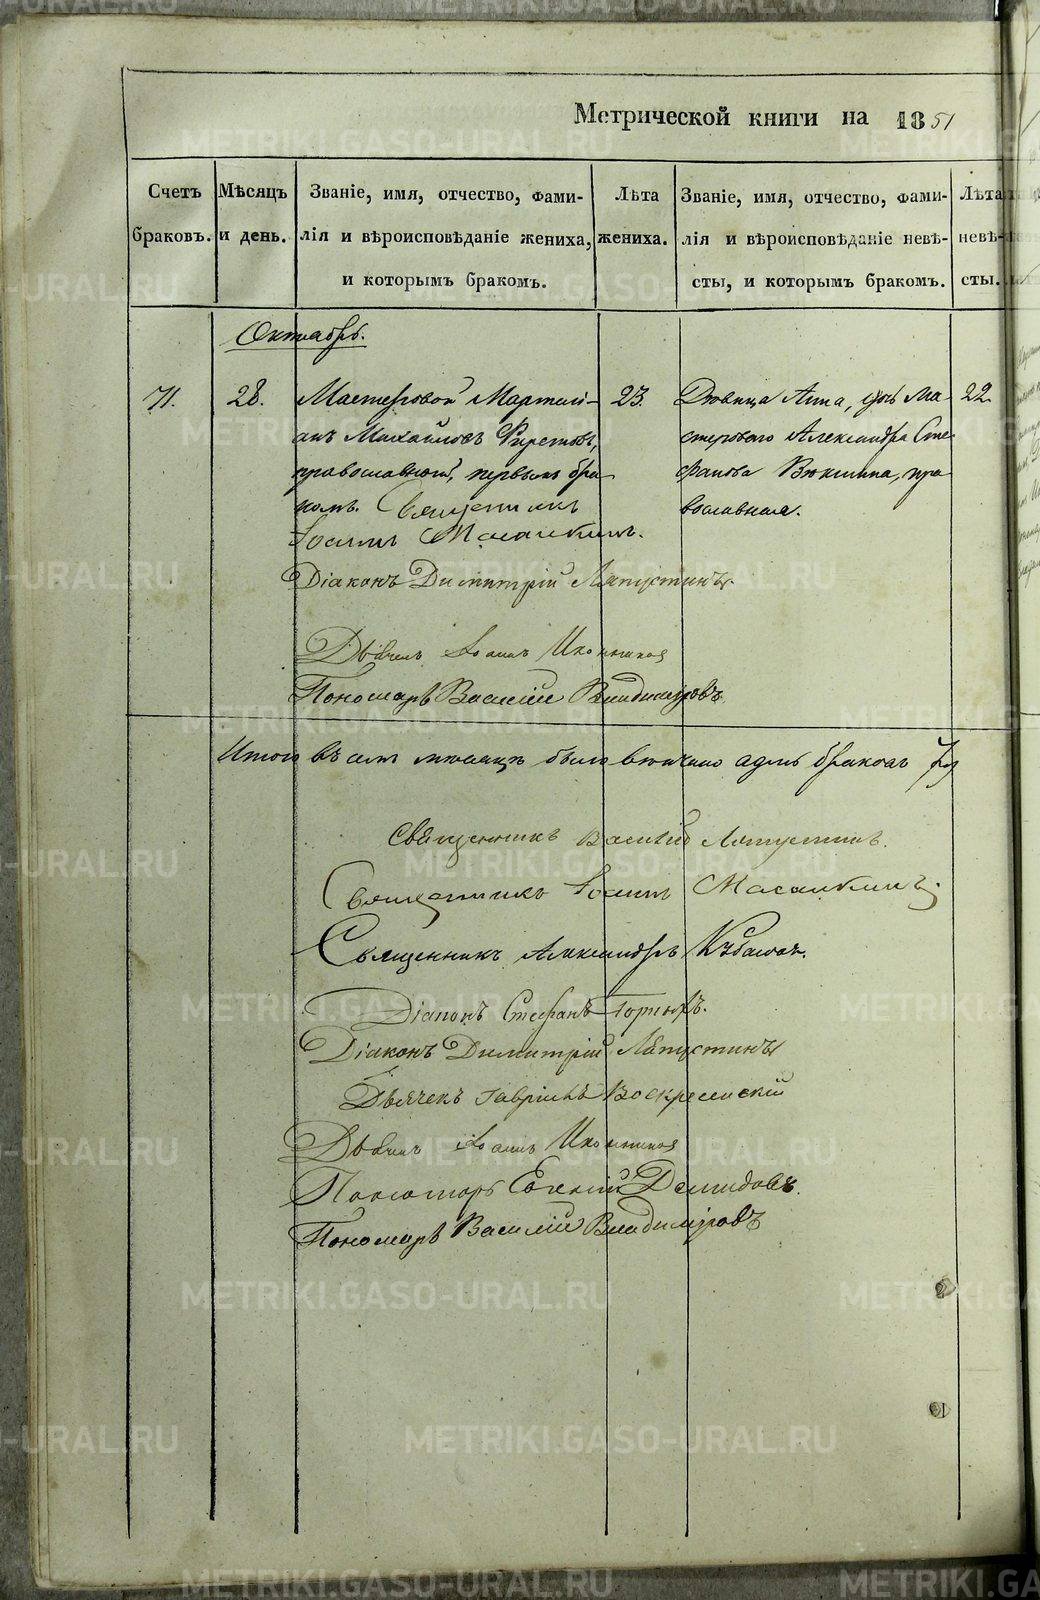 Метрической книги на 1851
Счетъ браковъ.
Мѣсяцъ и день.
Званіе, имя, отчество, фами-
лія и вѣроисповѣданіе жениха,
и которымъ бракомъ.
Лѣта
жениха.
Званіе, имя, отчество, фами-
лія и вѣроисповѣданіе невѣ-
сты, и которымъ бракомъ.
Лѣта
невѣ-
сты.
Октябрь.
71.
28.
Мастеровой Мартин-
анъ Михайловъ
православный, первымъ бра
комъ. Священникъ
Іоаннъ
Діаконъ Димитрій Ляпустинъ.
Дьячекъ Іоаннъ
Пономарь Василій Владиміровъ
23.
Дѣвица Анна, дочь Ма-
стероваго Александра Сте
фанова Вяткина, пра
вославная.
22.
Итого въ семъ мѣсяцѣ было вѣнчано браковъ
Священникъ Василій Ляпустинъ.
Священникъ Іоаннъ
Священникъ Александръ
Діаконъ Стефанъ
Діаконъ Димитрій Ляпустинъ
Дьячекъ Гавріилъ Воскресенскій
Дьячекъ Іоаннъ
Пономарь Евгеній Демидовъ.
Пономарь Василій Владиміровъ
METRIKI.GASO-URAL.RU